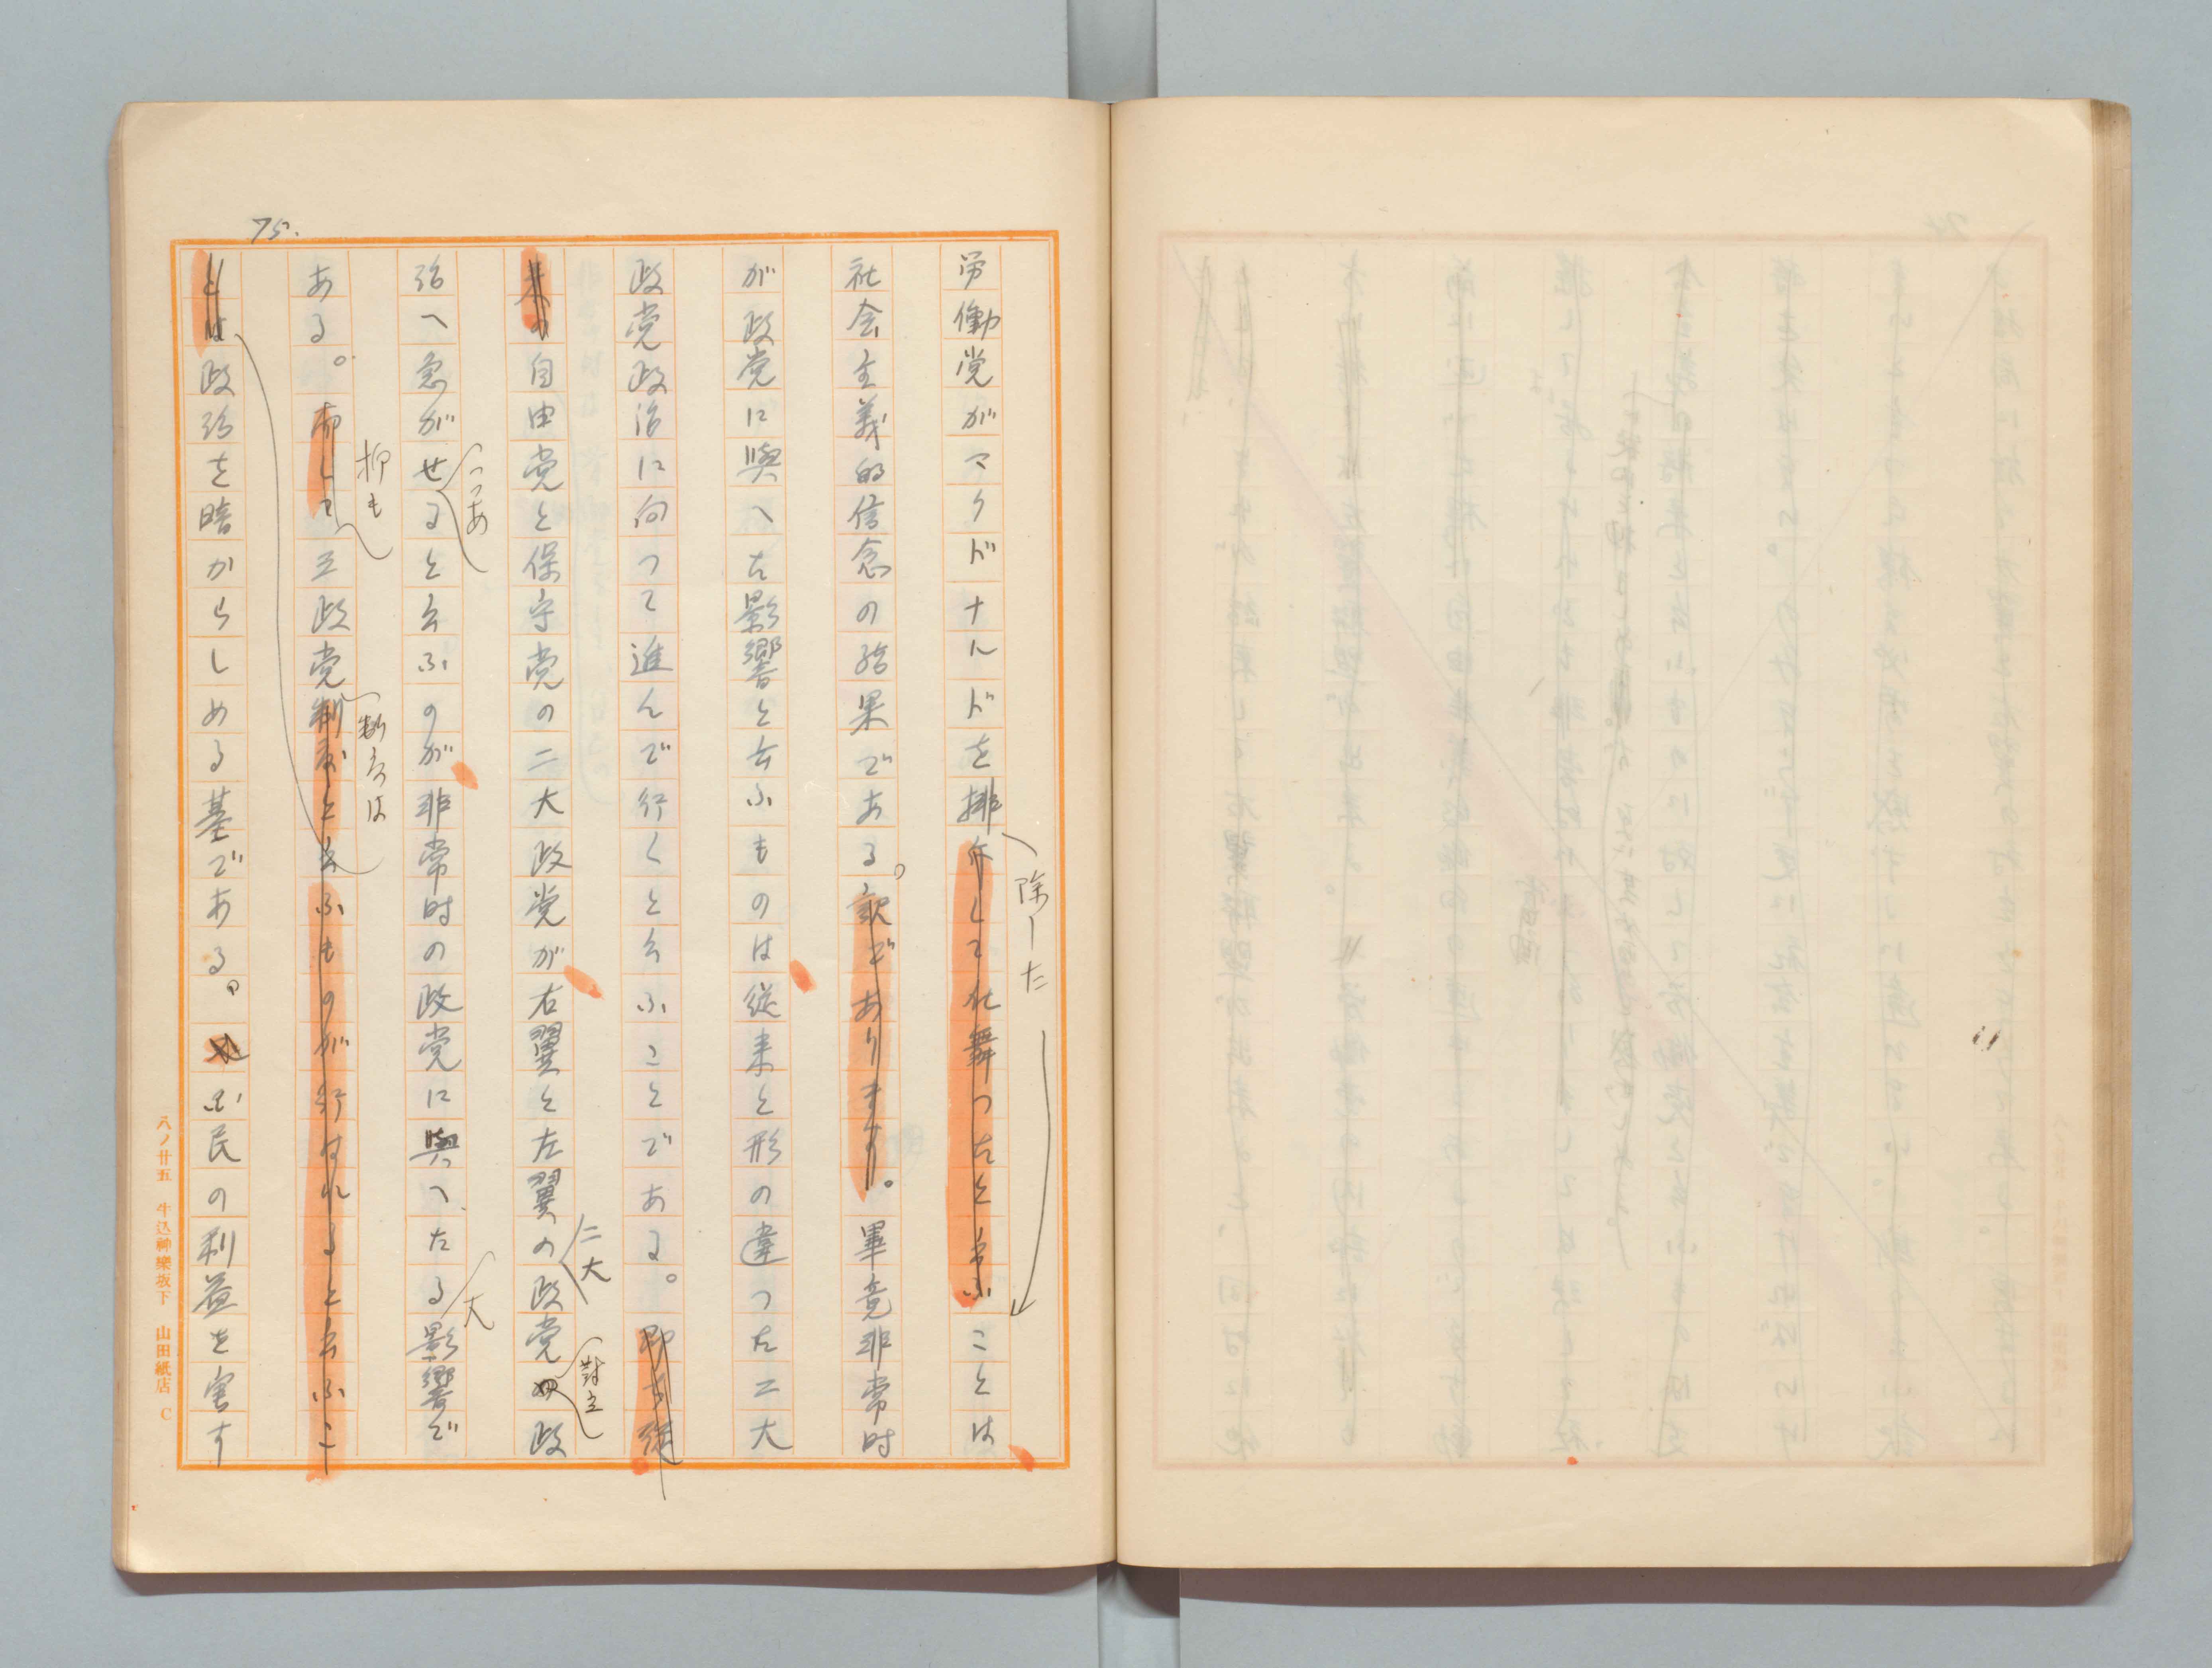 75.
労働党がマクドナルドを排斥して仕舞つたと云ふことは
除した
社会主義的信念の結果である。訳であります。畢竟非常時
が政党に與へた影響と云ふものは従来と形の違つた二大
政党政治に向つて進んで行くと云ふことである。即ち従
来の自由党と保守党の二大政党が右翼と左翼の政党の政
二大
對立
治へ急がせると云ふのが非常時の政党に與へたる影響で
つつあ
大
ある。而して三政党制度と云ふものが行はれると云ふこ
抑も
制度は
とは政治を暗からしめる基である。又国民の利益を害す
八ノ廿五 牛込神樂坂下 山田紙店 C